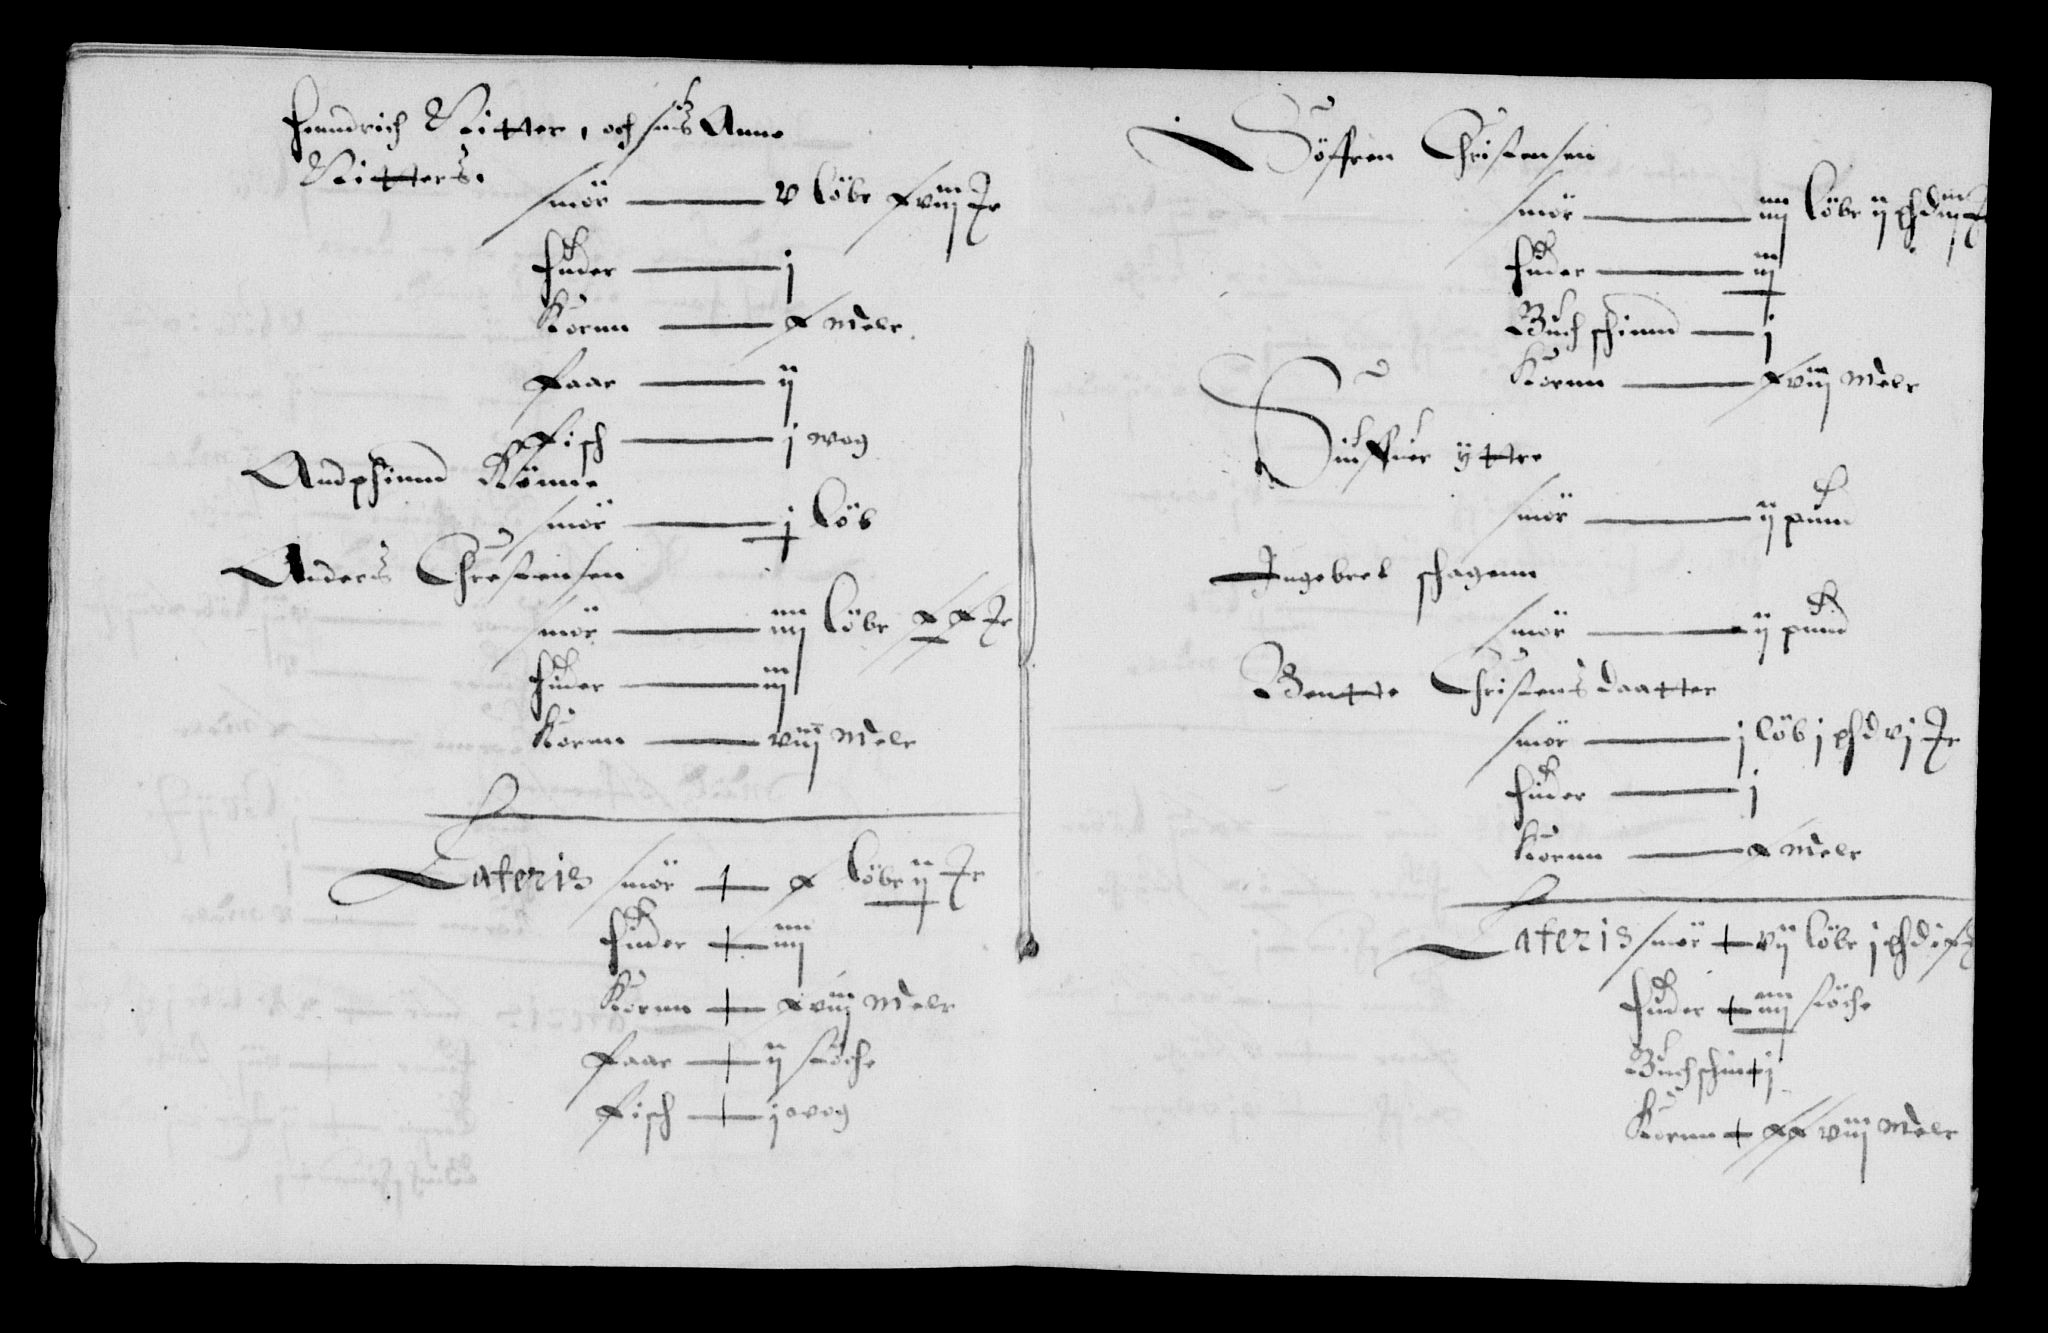 Henndrich Ritter, och sus Anne
Ritters.
smör — v löbe xviij Jr
huder — j
Kornn — x meler
Faar — ij
Fisch — j wog
Andphinnd Rönne
smör — j löb
Anders Chrestensen
smör — iiij löbe xx Jr
huder — iij
Kornn — viij meler
Lateris smör + x löbe ij Jr
huder + iiij
Kornn + xviij meler
Faar + ij stöche
Fisch + j wog
Söffren Christensen
smör — iiij löbe ij phd iij J
huder — iij
Buchschinnd — j
Kornn — xviij meler
Siuffuer yttre
smör — ij pund
Ingebret schagenn
smör — ij pund
Bentte Christens daatter
smör — j löb j phd vj Jr
huder — j
Kornn — x meler
Lateris smör + vij löbe j phd ix J
huder + iiij stöche
Buchschin + j
Kornn + xxviij meler